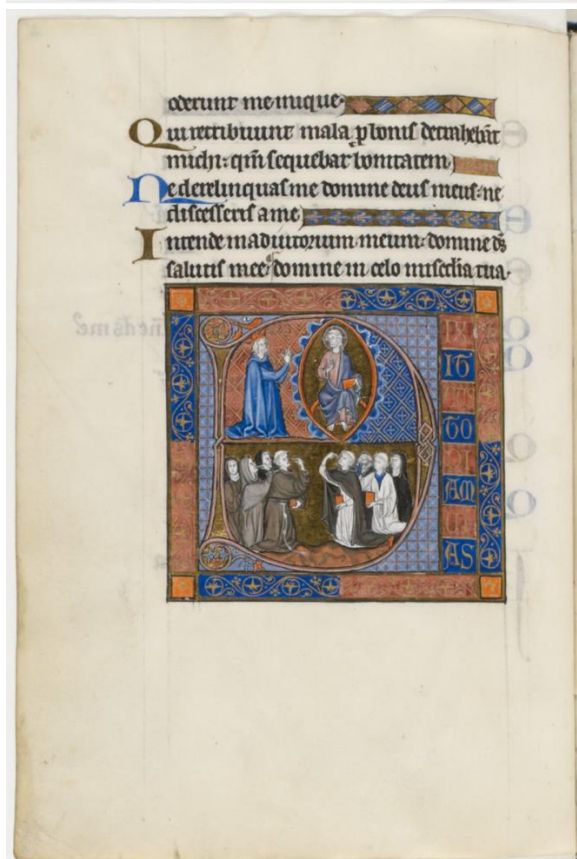 oderunt me inique.
Qui retribuunt mala ꝓ bonis detrahebāt
michi: qm̄ sequebar bonitatem.
Ne derelinquas me domine deus meus: ne
discesseris a me
Intende in adiutorium meum: domine ds̄
salutis mee. domine in celo mis̄cdia tua.
D
AM
AS